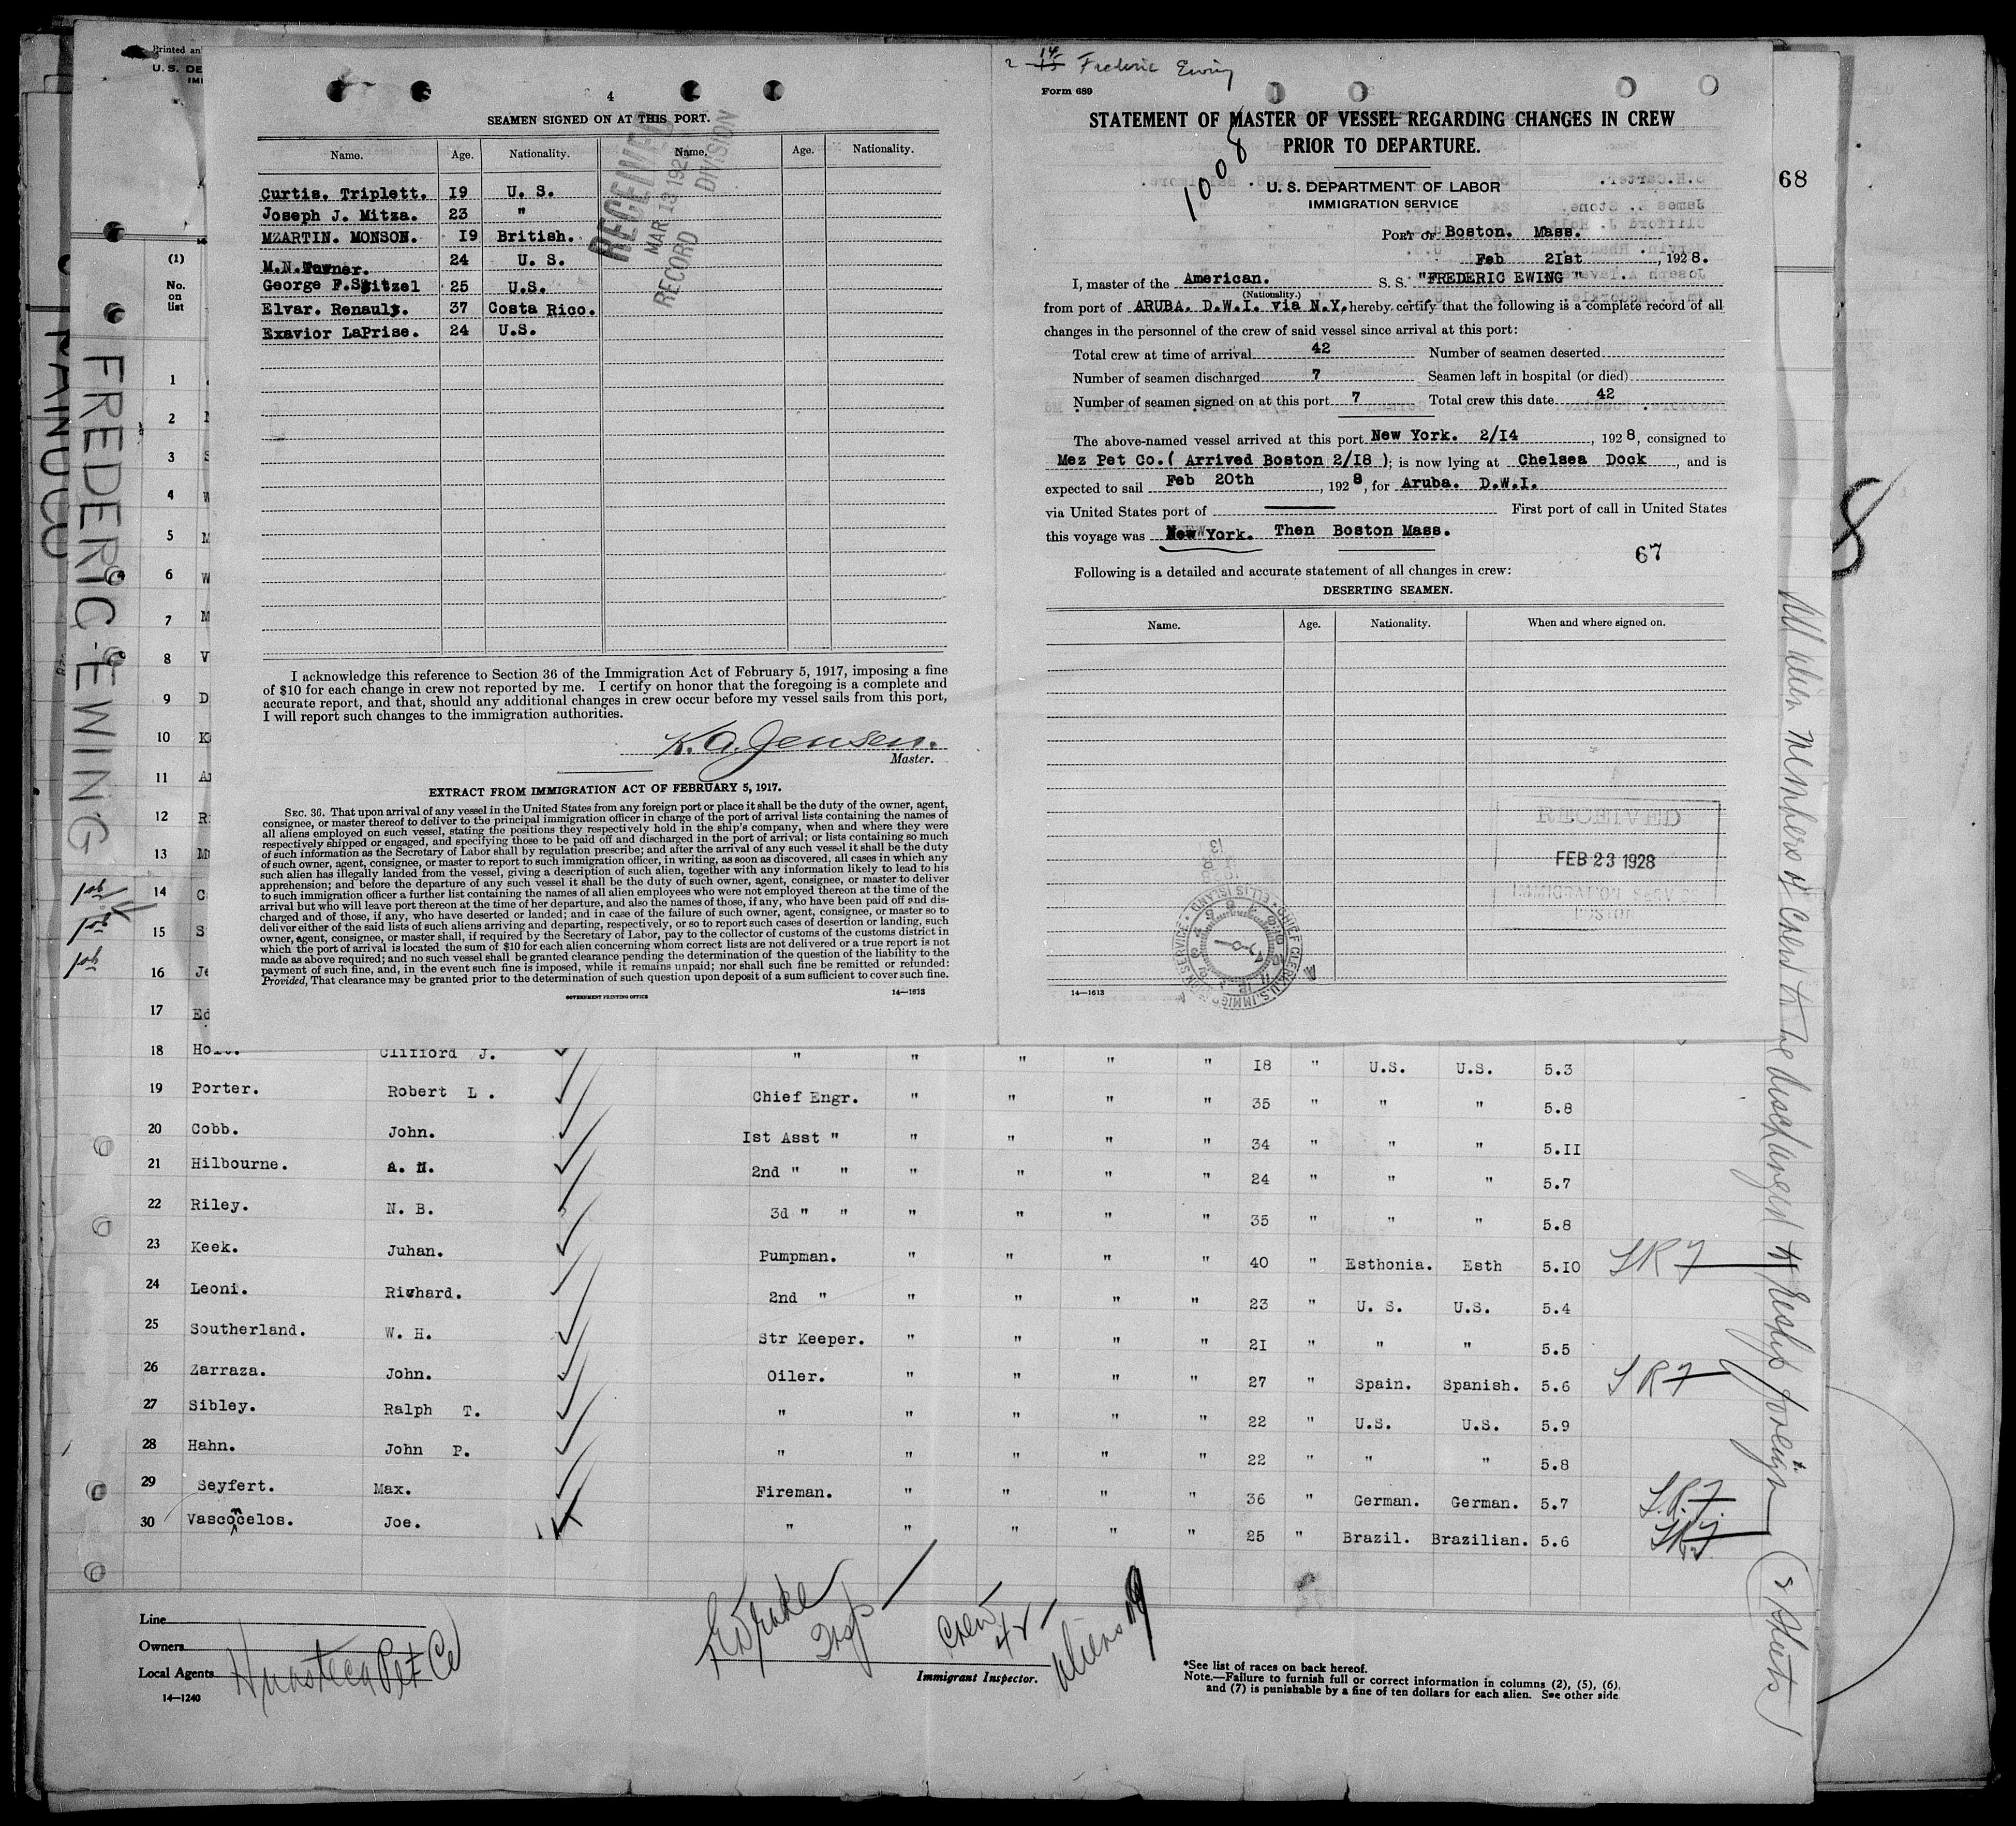 Printed an
U. S. DE
IMI
(1)
No.
on
list
PANUCO
FREDERIC-EWING
4
SEAMEN SIGNED ON AT THIS PORT.
Name. Age. Nationality. Name. Age. Nationality.
Curtis. Triplett. I9 U. S.
Joseph J. Mitza. 23 "
MZARTIN. MONSON. I9 British.
M.N. 24 U. S.
George F. 25 U.S.
Elvar. Renault. 37 Costa Rico.
Exavior LaPrise. 24 U.S.
RECEIVED
MAR 13 192
RECORD DIVISION
I acknowledge this reference to Section 36 of the Immigration Act of February 5, 1917, imposing a fine
of $10 for each change in crew not reported by me. I certify on honor that the foregoing is a complete and
accurate report, and that, should any additional changes in crew occur before my vessel sails from this port,
I will report such changes to the immigration authorities.
K. A. Jensen.
Master.
EXTRACT FROM IMMIGRATION ACT OF FEBRUARY 5, 1917.
SEC. 36. That upon arrival of any vessel in the United States from any foreign port or place it shall be the duty of the owner, agent,
consignee, or master thereof to deliver to the principal immigration officer in charge of the port of arrival lists containing the names of
all aliens employed on such vessel, stating the positions they respectively hold in the ship's company, when and where they were
respectively shipped or engaged, and specifying those to be paid off and discharged in the port of arrival; or lists containing so much
of such information as the Secretary of Labor shall by regulation prescribe; and after the arrival of any such vessel it shall be the duty
of such owner, agent, consignee, or master to report to such immigration officer, in writing, as soon as discovered, all cases in which any
such alien has illegally landed from the vessel, giving a description of such alien, together with any information likely to lead to his
apprehension; and before the departure of any such vessel it shall be the duty of such owner, agent, consignee, or master to deliver
to such immigration officer a further list containing the names of all alien employees who were not employed thereon at the time of the
arrival but who will leave port thereon at the time of her departure, and also the names of those, if any, who have been paid off and dis-
charged and of those, if any, who have deserted or landed; and in case of the failure of such owner, agent, consignee, or master so to
deliver either of the said lists of such aliens arriving and departing, respectively, or so to report such cases of desertion or landing, such
owner, agent, consignee, or master shall, if required by the Secretary of Labor, pay to the collector of customs of the customs district in
which the port of arrival is located the sum of $10 for each alien concerning whom correct lists are not delivered or a true report is not
made as above required; and no such vessel shall be granted clearance pending the determination of the question of the liability to the
payment of such fine, and, in the event such fine is imposed, while it remains unpaid; nor shall such fine be remitted or refunded:
Provided, That clearance may be granted prior to the determination of such question upon deposit of a sum sufficient to cover such fine.
GOVERNMENT PRINTING OFFICE
14—1613
Frederic Ewing
Form 689
STATEMENT OF MASTER OF VESSEL REGARDING CHANGES IN CREW
PRIOR TO DEPARTURE.
1008
U. S. DEPARTMENT OF LABOR
IMMIGRATION SERVICE
68
PORT OF Boston. Mass.
Feb 21st , 1928.
I, master of the American. S. S. "FREDERIC EWING "
(Nationality.)
from port of ARUBA. D.W.I. via N.Y. hereby certify that the following is a complete record of all
changes in the personnel of the crew of said vessel since arrival at this port:
Total crew at time of arrival 42 Number of seamen deserted
Number of seamen discharged 7 Seamen left in hospital (or died)
Number of seamen signed on at this port 7 Total crew this date 42
The above-named vessel arrived at this port New York. 2/I4 , 1928, consigned to
Mez Pet Co.( Arrived Boston 2/I8 ); is now lying at Chelsea Dock , and is
expected to sail Feb 20th , 1928, for Aruba. D.W.I.
via United States port of First port of call in United States
this voyage was New York. Then Boston Mass.
67
Following is a detailed and accurate statement of all changes in crew:
DESERTING SEAMEN.
Name. Age. Nationality. When and where signed on.
RECEIVED
FEB 23 1928
IMMIGRATION SERVICE
BOSTON
14—1613
1
2
3 S
4 W
5 M
6 W
7 M
8 V
9 D
10 K
11 A
12 R
13 M
14 C
15 S
16 Je
17 Ed
18 Clifford J. " " " " " I8 " U.S. U.S. 5.3
19 Porter. Robert L . Chief Engr. " " " " 35 " " " 5.8
20 Cobb. John. Ist Asst " " " " " 34 " " " 5.II
21 Hilbourne. 2nd " " " " " " 24 " " " 5.7
22 Riley. N. B. 3d " " " " " " 35 " " " 5.8
23 Keek. Juhan. Pumpman. " " " " 40 " Esthonia. Esth 5.I0 SR7
24 Leoni. Richard. 2nd " " " " " 23 " U. S. U.S. 5.4
25 Southerland. W. H. Str Keeper. " " " " 2I " " " 5.5
26 Zarraza. John. Oiler. " " " " 27 " Spain. Spanish. 5.6 SR7
27 Sibley. Ralph T. " " " " " 22 " U.S. U.S. 5.9
28 Hahn. John P. " " " " " 22 " " " 5.8
29 Seyfert. Max. Fireman. " " " " 36 " German. German. 5.7 S.R.7.
30 Vasconcelos. Joe. " " " " " 25 " Brazil. Brazilian. 5.6 SR7
All alien members of crew to be discharged to reship foreign
(2 Sheets)
Line
Owners
Local Agents Huasteca Pet Co
14—1240
Insp
Crew 42
aliens 19
Immigrant Inspector.
*See list of races on back hereof.
Note.—Failure to furnish full or correct information in columns (2), (5), (6),
and (7) is punishable by a fine of ten dollars for each alien. See other side.